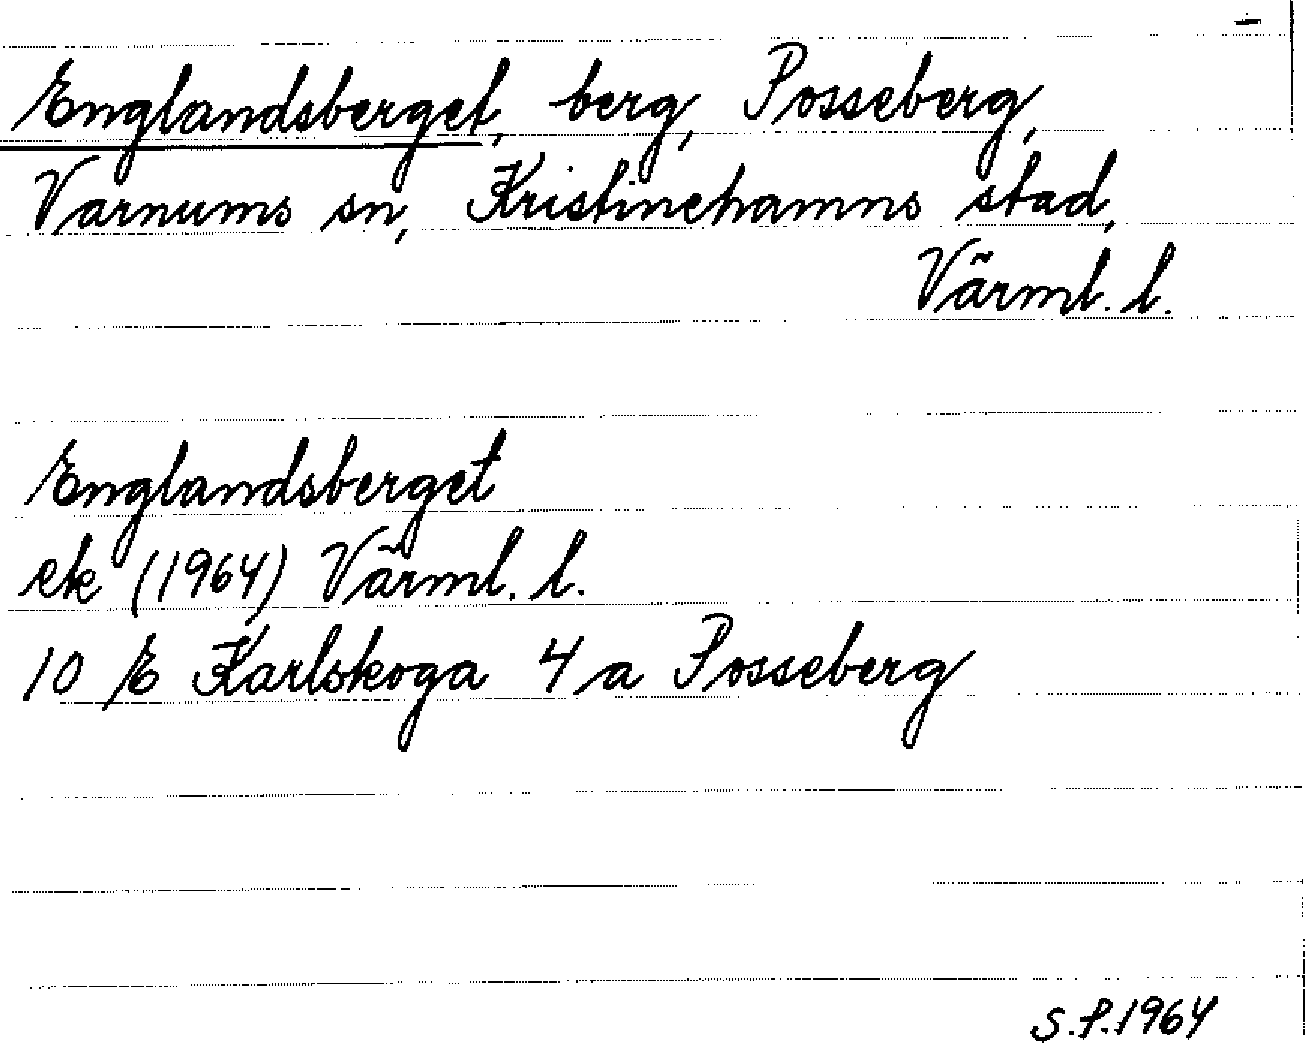 Englandsberget, berg, Posseberg,
Varnums sn, Kristinehamns stad,
Värml. l.
Englandsberget
ek (1964) Värml. l.
10 E Karlskoga 4 a Posseberg
S.P. 1964